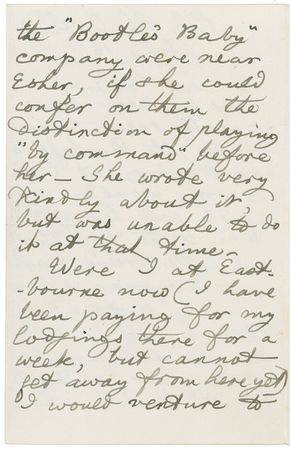 the "Bootle's Baby"
company were near
Esher, if she could
confer on them the
distinction of playing
"by command" before
her - She wrote very
kindly about it,
but was unable to do
it at that time -
Were I at East-
-bourne now (I have
been paying for my
lodgings there for a
week, but cannot
get away from here yet)
I would venture to